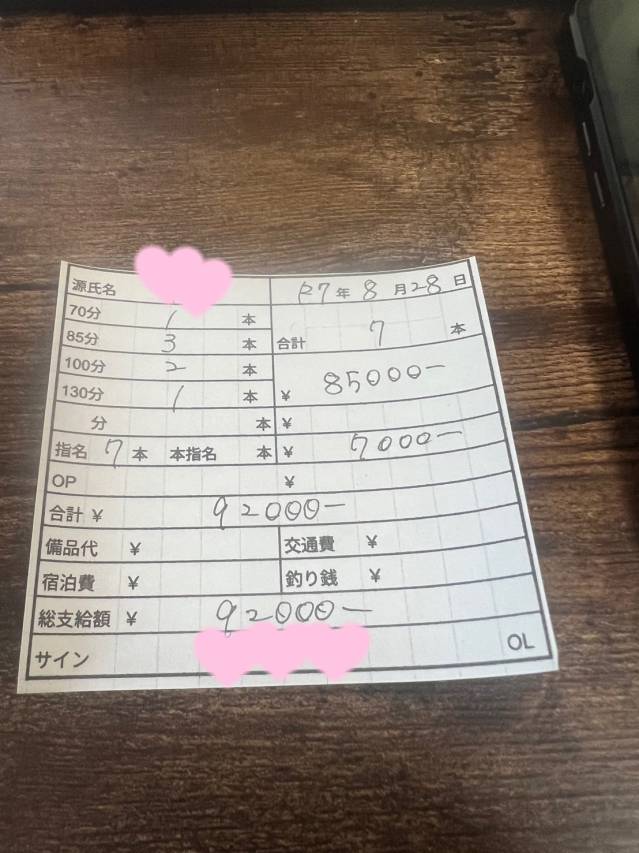 源氏名 R7年 8月28日
70分 1本
85分 3本 合計 7本
100分 2本
130分 1本 ¥ 85000-
分 本 ¥
指名 7本 本指名 本 ¥ 7000-
OP ¥
合計 ¥ 92000-
備品代 ¥ 交通費 ¥
宿泊費 ¥ 釣り銭 ¥
総支給額 ¥ 92000-
サイン OL